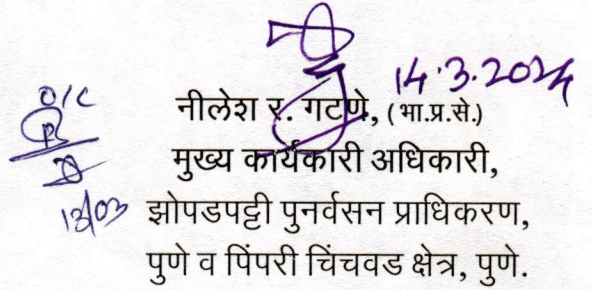 14.3.2024
O/C
13/03
नीलेश र. गटणे, (भा.प्र.से.)
मुख्य कार्यकारी अधिकारी,
झोपडपट्टी पुनर्वसन प्राधिकरण,
पुणे व पिंपरी चिंचवड क्षेत्र, पुणे.